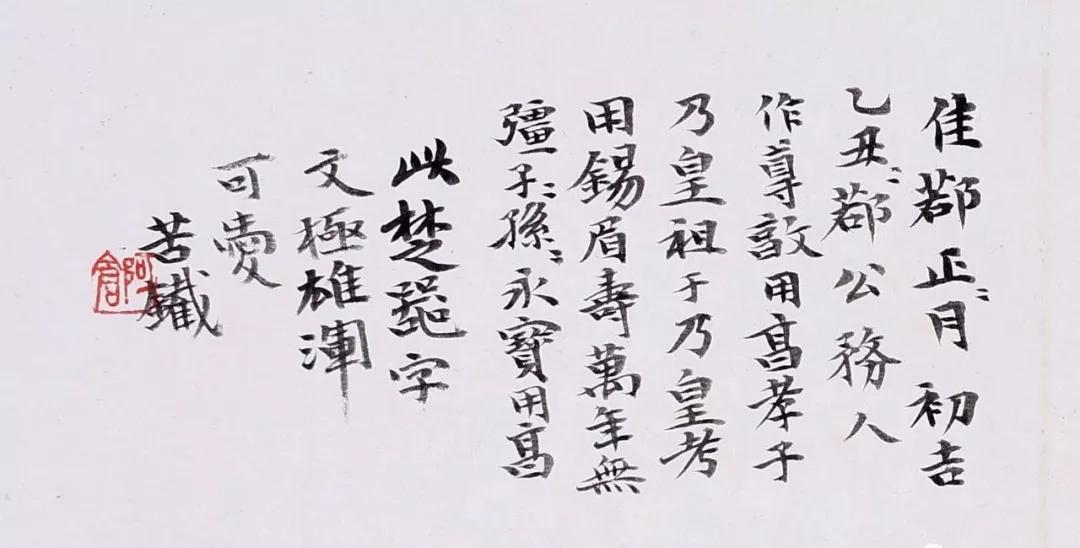 隹鄀正﹦月初吉
乙丑﹦鄀公務人
作尊敦用亯孝于
乃皇祖于乃皇考
用錫眉壽萬年無
彊子﹦孫﹦永寶用亯
此楚器字
文極雄渾
可愛
苦鐵
阿倉